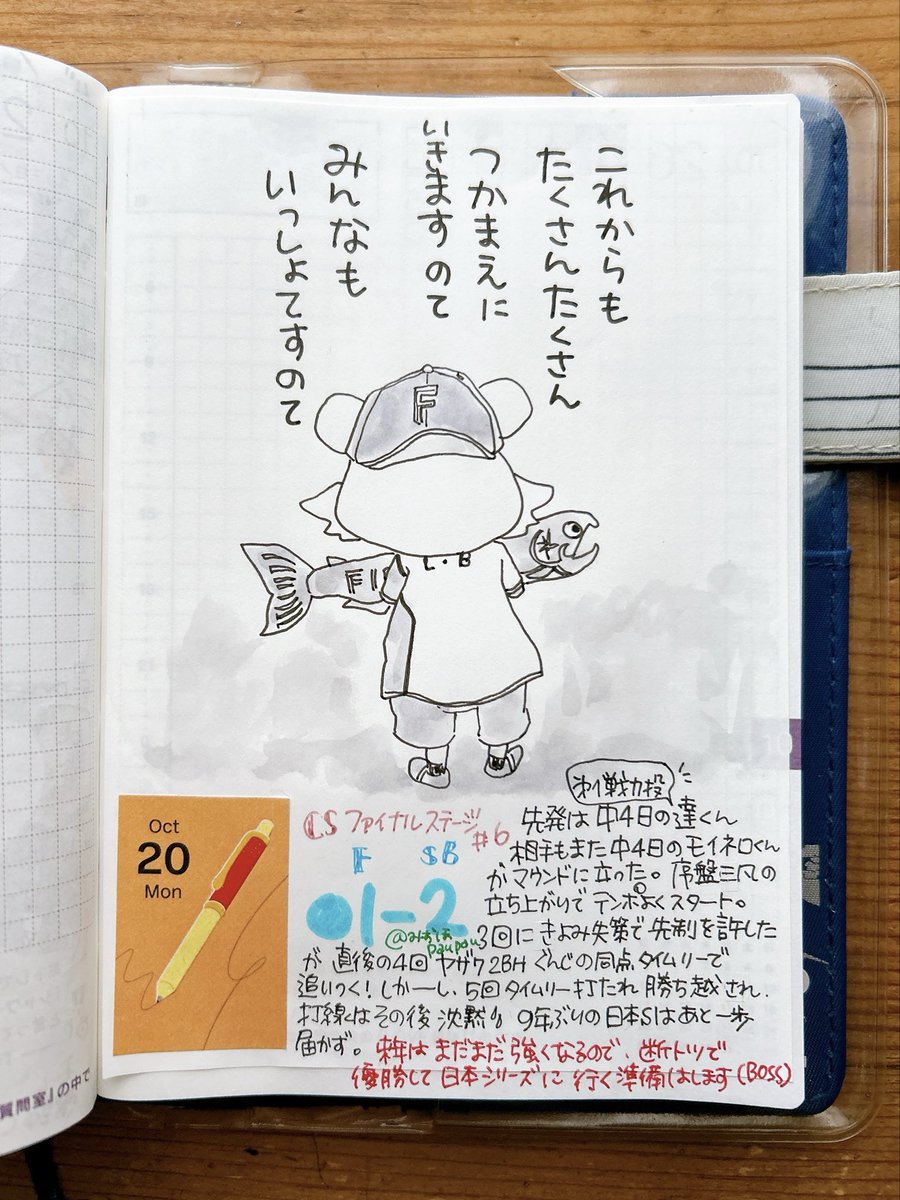 これからも
たくさんたくさん
つかまえに
いきますのて
みんなも
いっしょてすのて
F
L・B
FI
Oct
20
Mon
CS ファイナルステージ
#6
F SB
●1-2
@みずほ
PayPay
才1戦力投
先発は中4日の達くん
相手もまた中4日のモイネロくん
がマウンドに立った。序盤三凡の
立ち上がりでテンポよくスタート。
3回にきよみ失策で先制を許した
が直後の4回ヤザワ2BHぐんじの同点タイムリーで
追いつく!しかーし、5回タイムリー打たれ勝ち越され、
打線はその後沈黙。9年ぶりの日本Sはあと一歩
届かず。来年はまだまだ強くなるので、断トツで
優勝して日本シリーズに行く準備はします(BOSS)
質問室』の中で